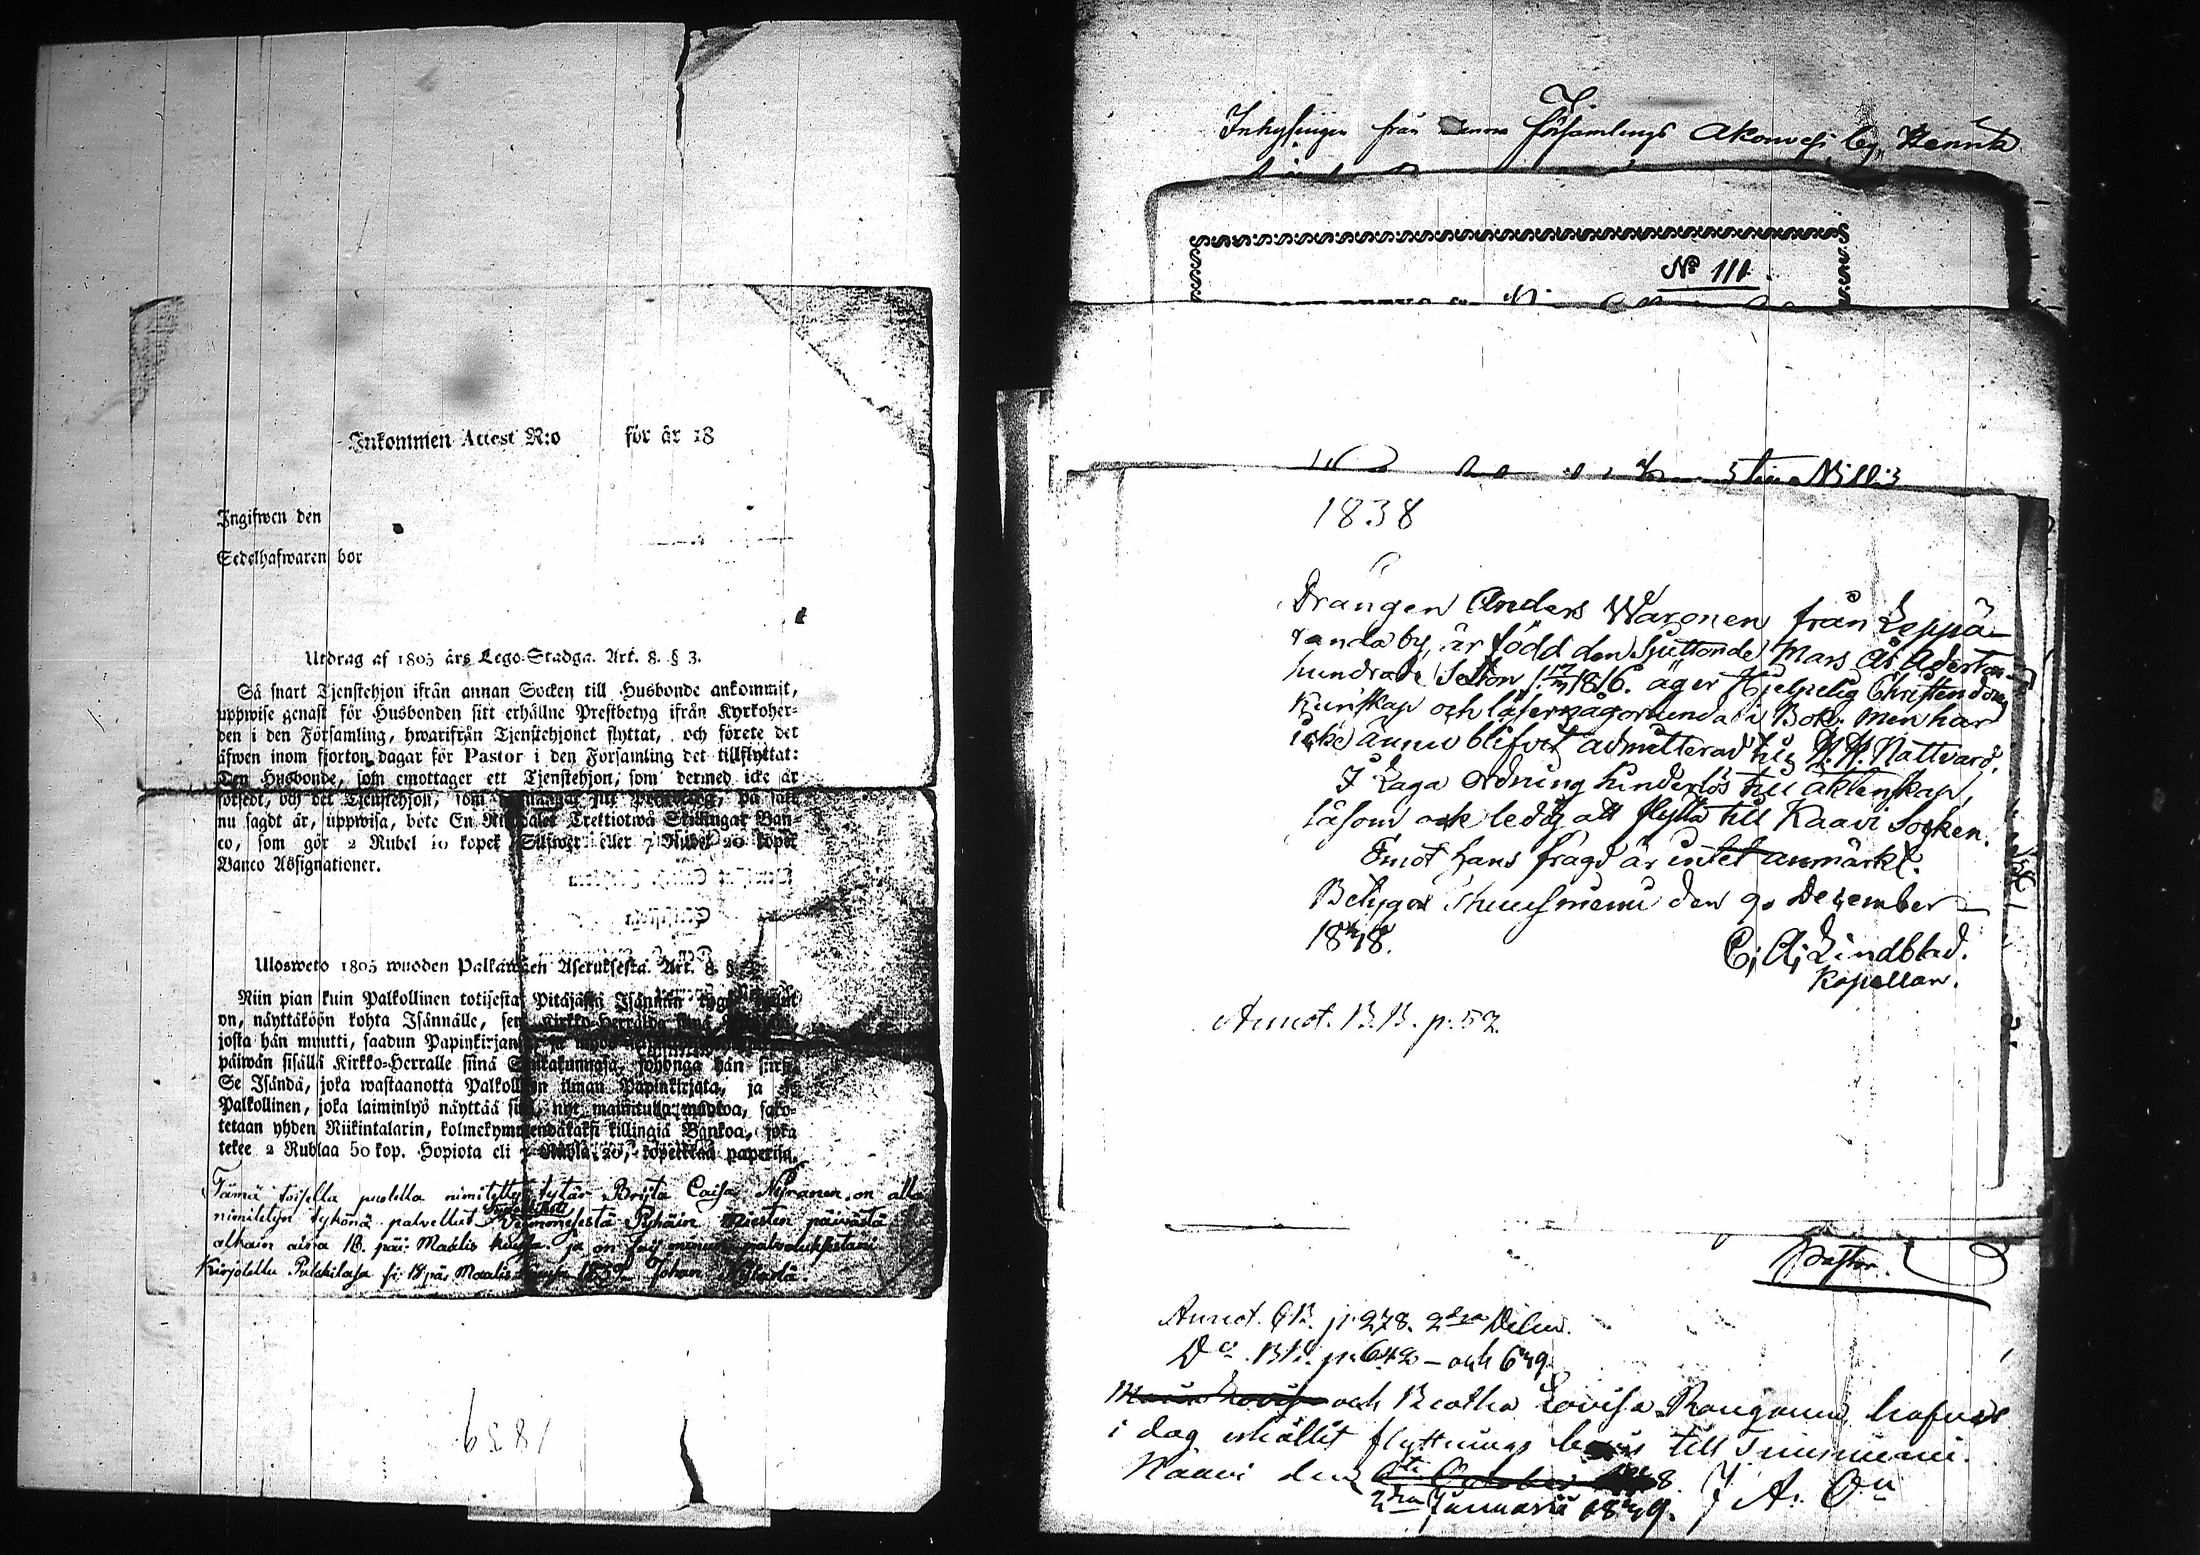 Inkommen Attest N:o för år 18
Ingifwen den
Sedelhafwaren bor
Utdrag af 1805 års Lego-Stadga. Art. 8. § 3.
Så snart Tjenstehjon ifrån annan Socken till Husbonde ankommit,
uppwise genast för Husbonden sitt erhållne Prestbetyg ifrån Kyrkoher-
den i den Församling, hwarifrån Tjenstehjonet flyttat, och förete det
äfwen inom fjorton dagar för Pastor i den Församling det tillflyttat:
Den Husbonde, som emottager ett Tjenstehjon, som dermed icke är
försedt, och det Tjenstehjon, som på sätt
nu sagdt är, uppwisa, böte En Riksdaler Trettiotwå Skillingar Ban-
co, som gör 2 Rubel 10 kopek Silfwer eller 7 Rubel 20 kopek
Banco Assignationer.
Ulosweto 1805 wuoden Palkawäen Aseruksesta. Art. 8. §
Niin pian kuin Palkollinen totisesta Pitäjästä Isännän tygö
on, näyttäköön kohta Isännälle, sen Kirkko-Herralda siinä
josta hän muutti, saadun Papinkirjan
päiwän sisällä Kirkko-Herralle siinä Seurakunnasa, johonga hän siirsi.
Se Isändä, joka wastaanotta Palkollisen ilman Papinkirjata, ja se
Palkollinen, joka laiminlyö näyttää sitä, nyt mainitulla muotoa, sako-
tetaan yhden Riikintalarin, kolmekymmendäkaksi killingiä Bankoa, joka
tekee 2 Rublaa 50 kop. Hopiota eli 7 Rubla 20 kopeekkaa paperisa.
Tämä toisella puolella nimitetty tytär Brijta Caisa Nyranen on alla
nimitetyn tykönä palvellut Pyhäin Miesten päivästä
alkain aina 18. päi. Maalis kuussa ja on
Kirjotettu Pulckilasa si 18 päi. Maalis kuusa 1839. Johan
1839
Inhysingen från denna Församlings Akonvesi by, Henrik
No 111.
Stina Nillis
1838
Drängen Anders Waronen från Leppä-
randa by, är född den Sjuttonde Mars År Aderton-
hundrade Sexton 17/3 1816. äger Hjelpelig Christendoms
Kunskap och läser någorlunda i Bok. men har
icke ännu blifvit admitterad till H. H. Nattvard.
I Laga ordning hinderlös till äktenskap,
låsom ock ledig att flytta till Kaavi Socken.
Emot hans frägd är intet anmärkt.
Betygar Thuusniemi den 9. December
1838.
C; A; Lindblad.
Kapellan.
Annot. B.B. p. 52.
Pastor.
Annot. C.B. p. 278. 2dra Delen.
Do. B.B. p. 642 – och 649
och Beatha Lovisa hafver
i dag erhållit flyttnings bevis till Tuusniemi.
Kaavi den
2dra Januarii 1839. J A. On